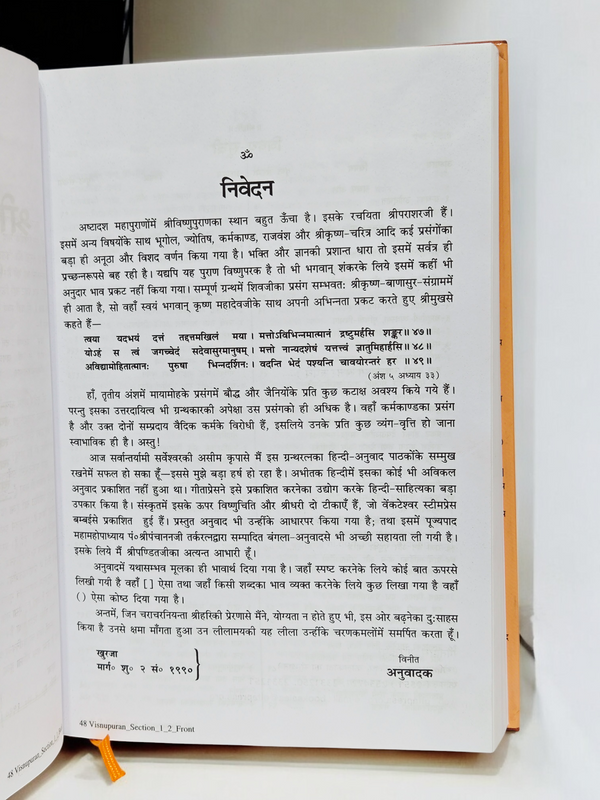 ॐ
निवेदन
अष्टादश महापुराणोंमें श्रीविष्णुपुराणका स्थान बहुत ऊँचा है। इसके रचयिता श्रीपराशरजी हैं।
इसमें अन्य विषयोंके साथ भूगोल, ज्योतिष, कर्मकाण्ड, राजवंश और श्रीकृष्ण-चरित्र आदि कई प्रसंगोंका
बड़ा ही अनूठा और विशद वर्णन किया गया है। भक्ति और ज्ञानकी प्रशान्त धारा तो इसमें सर्वत्र ही
प्रच्छन्नरूपसे बह रही है। यद्यपि यह पुराण विष्णुपरक है तो भी भगवान् शंकरके लिये इसमें कहीं भी
अनुदार भाव प्रकट नहीं किया गया। सम्पूर्ण ग्रन्थमें शिवजीका प्रसंग सम्भवतः श्रीकृष्ण-बाणासुर-संग्राममें
ही आता है, सो वहाँ स्वयं भगवान् कृष्ण महादेवजीके साथ अपनी अभिन्नता प्रकट करते हुए श्रीमुखसे
कहते हैं—
त्वया यदभयं दत्तं तद्दत्तमखिलं मया। मत्तोऽविभिन्नमात्मानं द्रष्टुमर्हसि शङ्कर॥ ४७॥
योऽहं स त्वं जगच्चेदं सदेवासुरमानुषम्। मत्तो नान्यदशेषं यत्तत्त्वं ज्ञातुमिहार्हसि॥ ४८॥
अविद्यामोहितात्मानः पुरुषा भिन्नदर्शिनः। वदन्ति भेदं पश्यन्ति चावयोरन्तरं हर ॥ ४९॥
(अंश ५ अध्याय ३३)
हाँ, तृतीय अंशमें मायामोहके प्रसंगमें बौद्ध और जैनियोंके प्रति कुछ कटाक्ष अवश्य किये गये हैं।
परन्तु इसका उत्तरदायित्व भी ग्रन्थकारकी अपेक्षा उस प्रसंगको ही अधिक है। वहाँ कर्मकाण्डका प्रसंग
है और उक्त दोनों सम्प्रदाय वैदिक कर्मके विरोधी हैं, इसलिये उनके प्रति कुछ व्यंग-वृत्ति हो जाना
स्वाभाविक ही है। अस्तु!
आज सर्वान्तर्यामी सर्वेश्वरकी असीम कृपासे मैं इस ग्रन्थरत्नका हिन्दी-अनुवाद पाठकोंके सम्मुख
रखनेमें सफल हो सका हूँ—इससे मुझे बड़ा हर्ष हो रहा है। अभीतक हिन्दीमें इसका कोई भी अविकल
अनुवाद प्रकाशित नहीं हुआ था। गीताप्रेसने इसे प्रकाशित करनेका उद्योग करके हिन्दी-साहित्यका बड़ा
उपकार किया है। संस्कृतमें इसके ऊपर विष्णुचिति और श्रीधरी दो टीकाएँ हैं, जो वेंकटेश्वर स्टीमप्रेस
बम्बईसे प्रकाशित हुई हैं। प्रस्तुत अनुवाद भी उन्हींके आधारपर किया गया है; तथा इसमें पूज्यपाद
महामहोपाध्याय पं०श्रीपंचाननजी तर्करत्नद्वारा सम्पादित बंगला-अनुवादसे भी अच्छी सहायता ली गयी है।
इसके लिये मैं श्रीपण्डितजीका अत्यन्त आभारी हूँ।
अनुवादमें यथासम्भव मूलका ही भावार्थ दिया गया है। जहाँ स्पष्ट करनेके लिये कोई बात ऊपरसे
लिखी गयी है वहाँ [ ] ऐसा तथा जहाँ किसी शब्दका भाव व्यक्त करनेके लिये कुछ लिखा गया है वहाँ
( ) ऐसा कोष्ठ दिया गया है।
अन्तमें, जिन चराचरनियन्ता श्रीहरिकी प्रेरणासे मैंने, योग्यता न होते हुए भी, इस ओर बढ़नेका दुःसाहस
किया है उनसे क्षमा माँगता हुआ उन लीलामयकी यह लीला उन्हींके चरणकमलोंमें समर्पित करता हूँ।
खुरजा
मार्ग० शु० २ सं० १९९०
विनीत
अनुवादक
48 Visnupuran_Section_1_2_Front